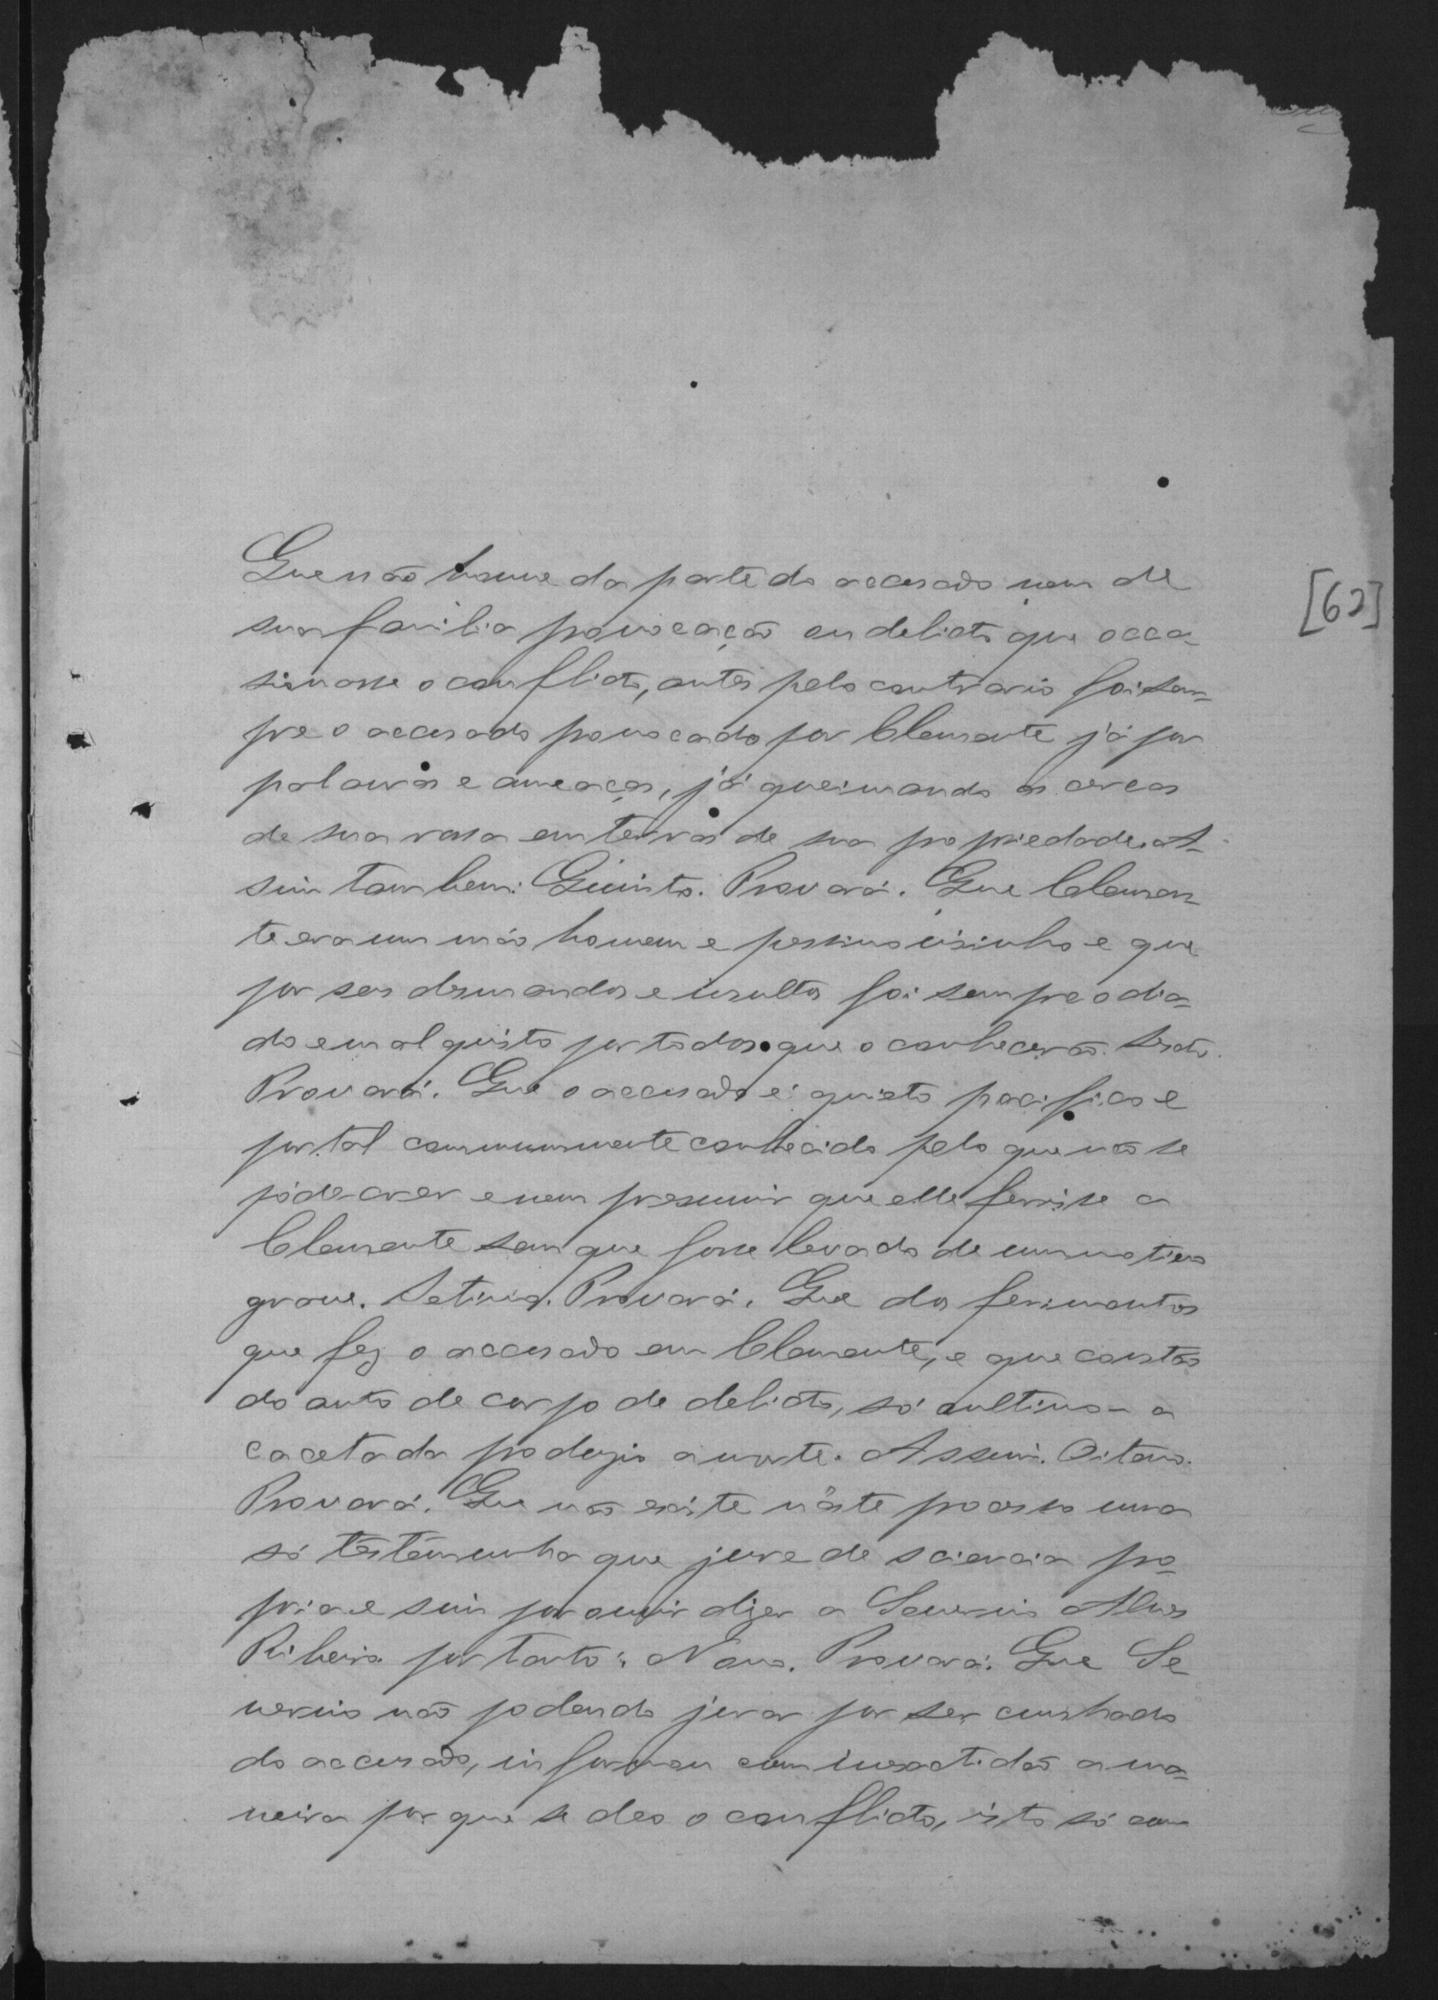 [62]
Que não houve da parte do accusado nem de
sua familia provocação ou delicto que occa-
sionasse o conflicto, antes pelo contrario foi sem-
pre o accusado provocado por Clemente já por
palavras e ameaças, já queimando as cercas
de sua rosa em terras de sua propriedade. As-
sim tambem: Quinto. Provará. Que Clemen-
te era um máo homem e pessimo visinho e que
por seos desmandos e insultos foi sempre odia-
do e mal quisto por todos que o conhecerão. Sexto.
Provará. Que o accusado é quieto pacifico e
por tal communmente conhecido pelo que não se
póde crer e nem presumir que elle ferisse a
Clemente sem que fosse levado de um motivo
grave. Setimo. Provará. Que dos ferimentos
que fez o accusado em Clemente, e que constão
do auto de corpo de delicto, só a ultima a
cacetada produzio a morte. Assim. Oitavo.
Provará. Que não existe n'este processo uma
só testemunha que jure de sciencia pro-
pria e sim por ouvir dizer a Severino Alves
Ribeiro por tanto: Nono. Provará. Que Se
verino não podendo jurar por ser cunhado
do accusado, informou com inexactidão a ma-
neira por que se deo o conflicto, isto só com